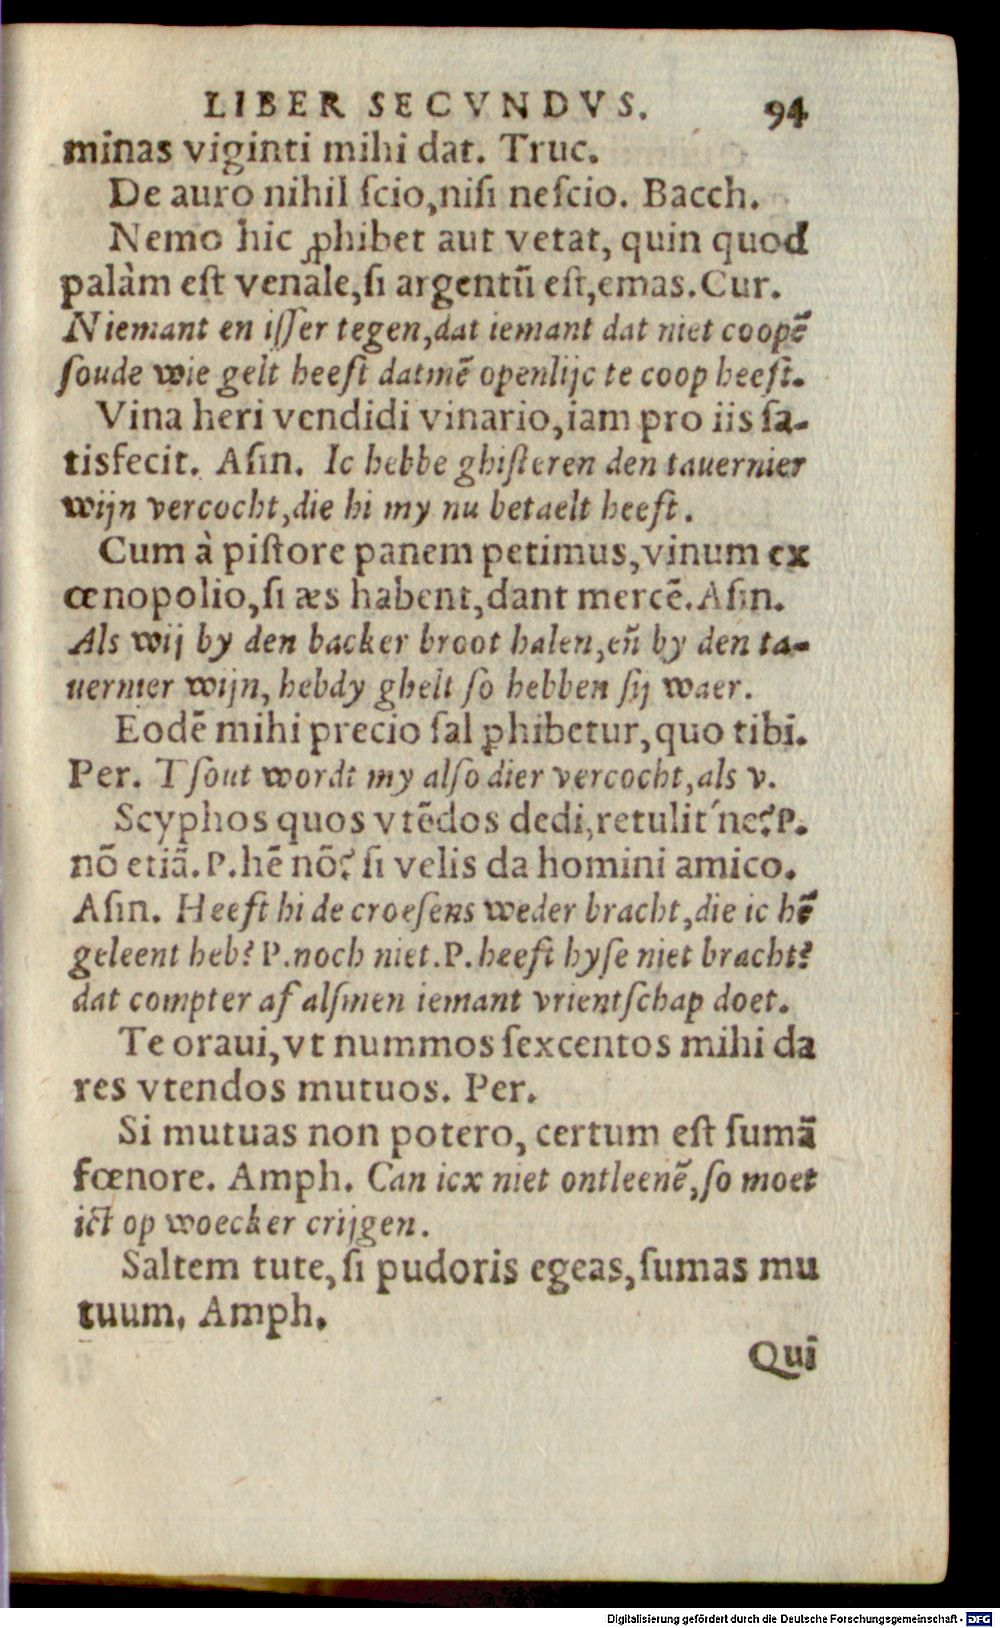 LIBER SECVNDVS. 94
minas viginti mihi dat. Truc.
De auro nihil ſcio,niſi neſcio. Bacch.
Nemo hic ꝓhibet aut vetat, quin quod
palàm eſt venale,ſi argentū eſt,emas.Cur.
Niemant en iſſer tegen,dat iemant dat niet coopē
ſoude wie gelt heeft datmē openlijc te coop heeft.
Vina heri vendidi vinario,iam pro iis ſa-
tisfecit. Aſin. Ic hebbe ghiſteren den tauernier
wijn vercocht,die hi my nu betaelt heeft.
Cum à piſtore panem petimus,vinum ex
œnopolio,ſi æs habent,dant mercē.Aſin.
Als wij by den backer broot halen,en̄ by den ta-
uernier wijn, hebdy ghelt ſo hebben ſij waer.
Eodē mihi precio ſal ꝓhibetur,quo tibi.
Per. Tſout wordt my alſo dier vercocht,als v.
Scyphos quos vtēdos dedi,retulit´ne?P.
nō etiā.P.hē nō? ſi velis da homini amico.
Aſin. Heeft hi de croeſens weder bracht,die ic hē
geleent heb? P.noch niet.P.heeft hyſe niet bracht?
dat compter af alſmen iemant vrientſchap doet.
Te oraui,vt nummos ſexcentos mihi da
res vtendos mutuos. Per.
Si mutuas non potero, certum eſt ſumā
fœnore. Amph. Can icx niet ontleenē,ſo moet
ict op woecker crijgen.
Saltem tute,ſi pudoris egeas,ſumas mu
tuum. Amph.
Qui
Digitalisierung gefördert durch die Deutsche Forschungsgemeinschaft - DFG